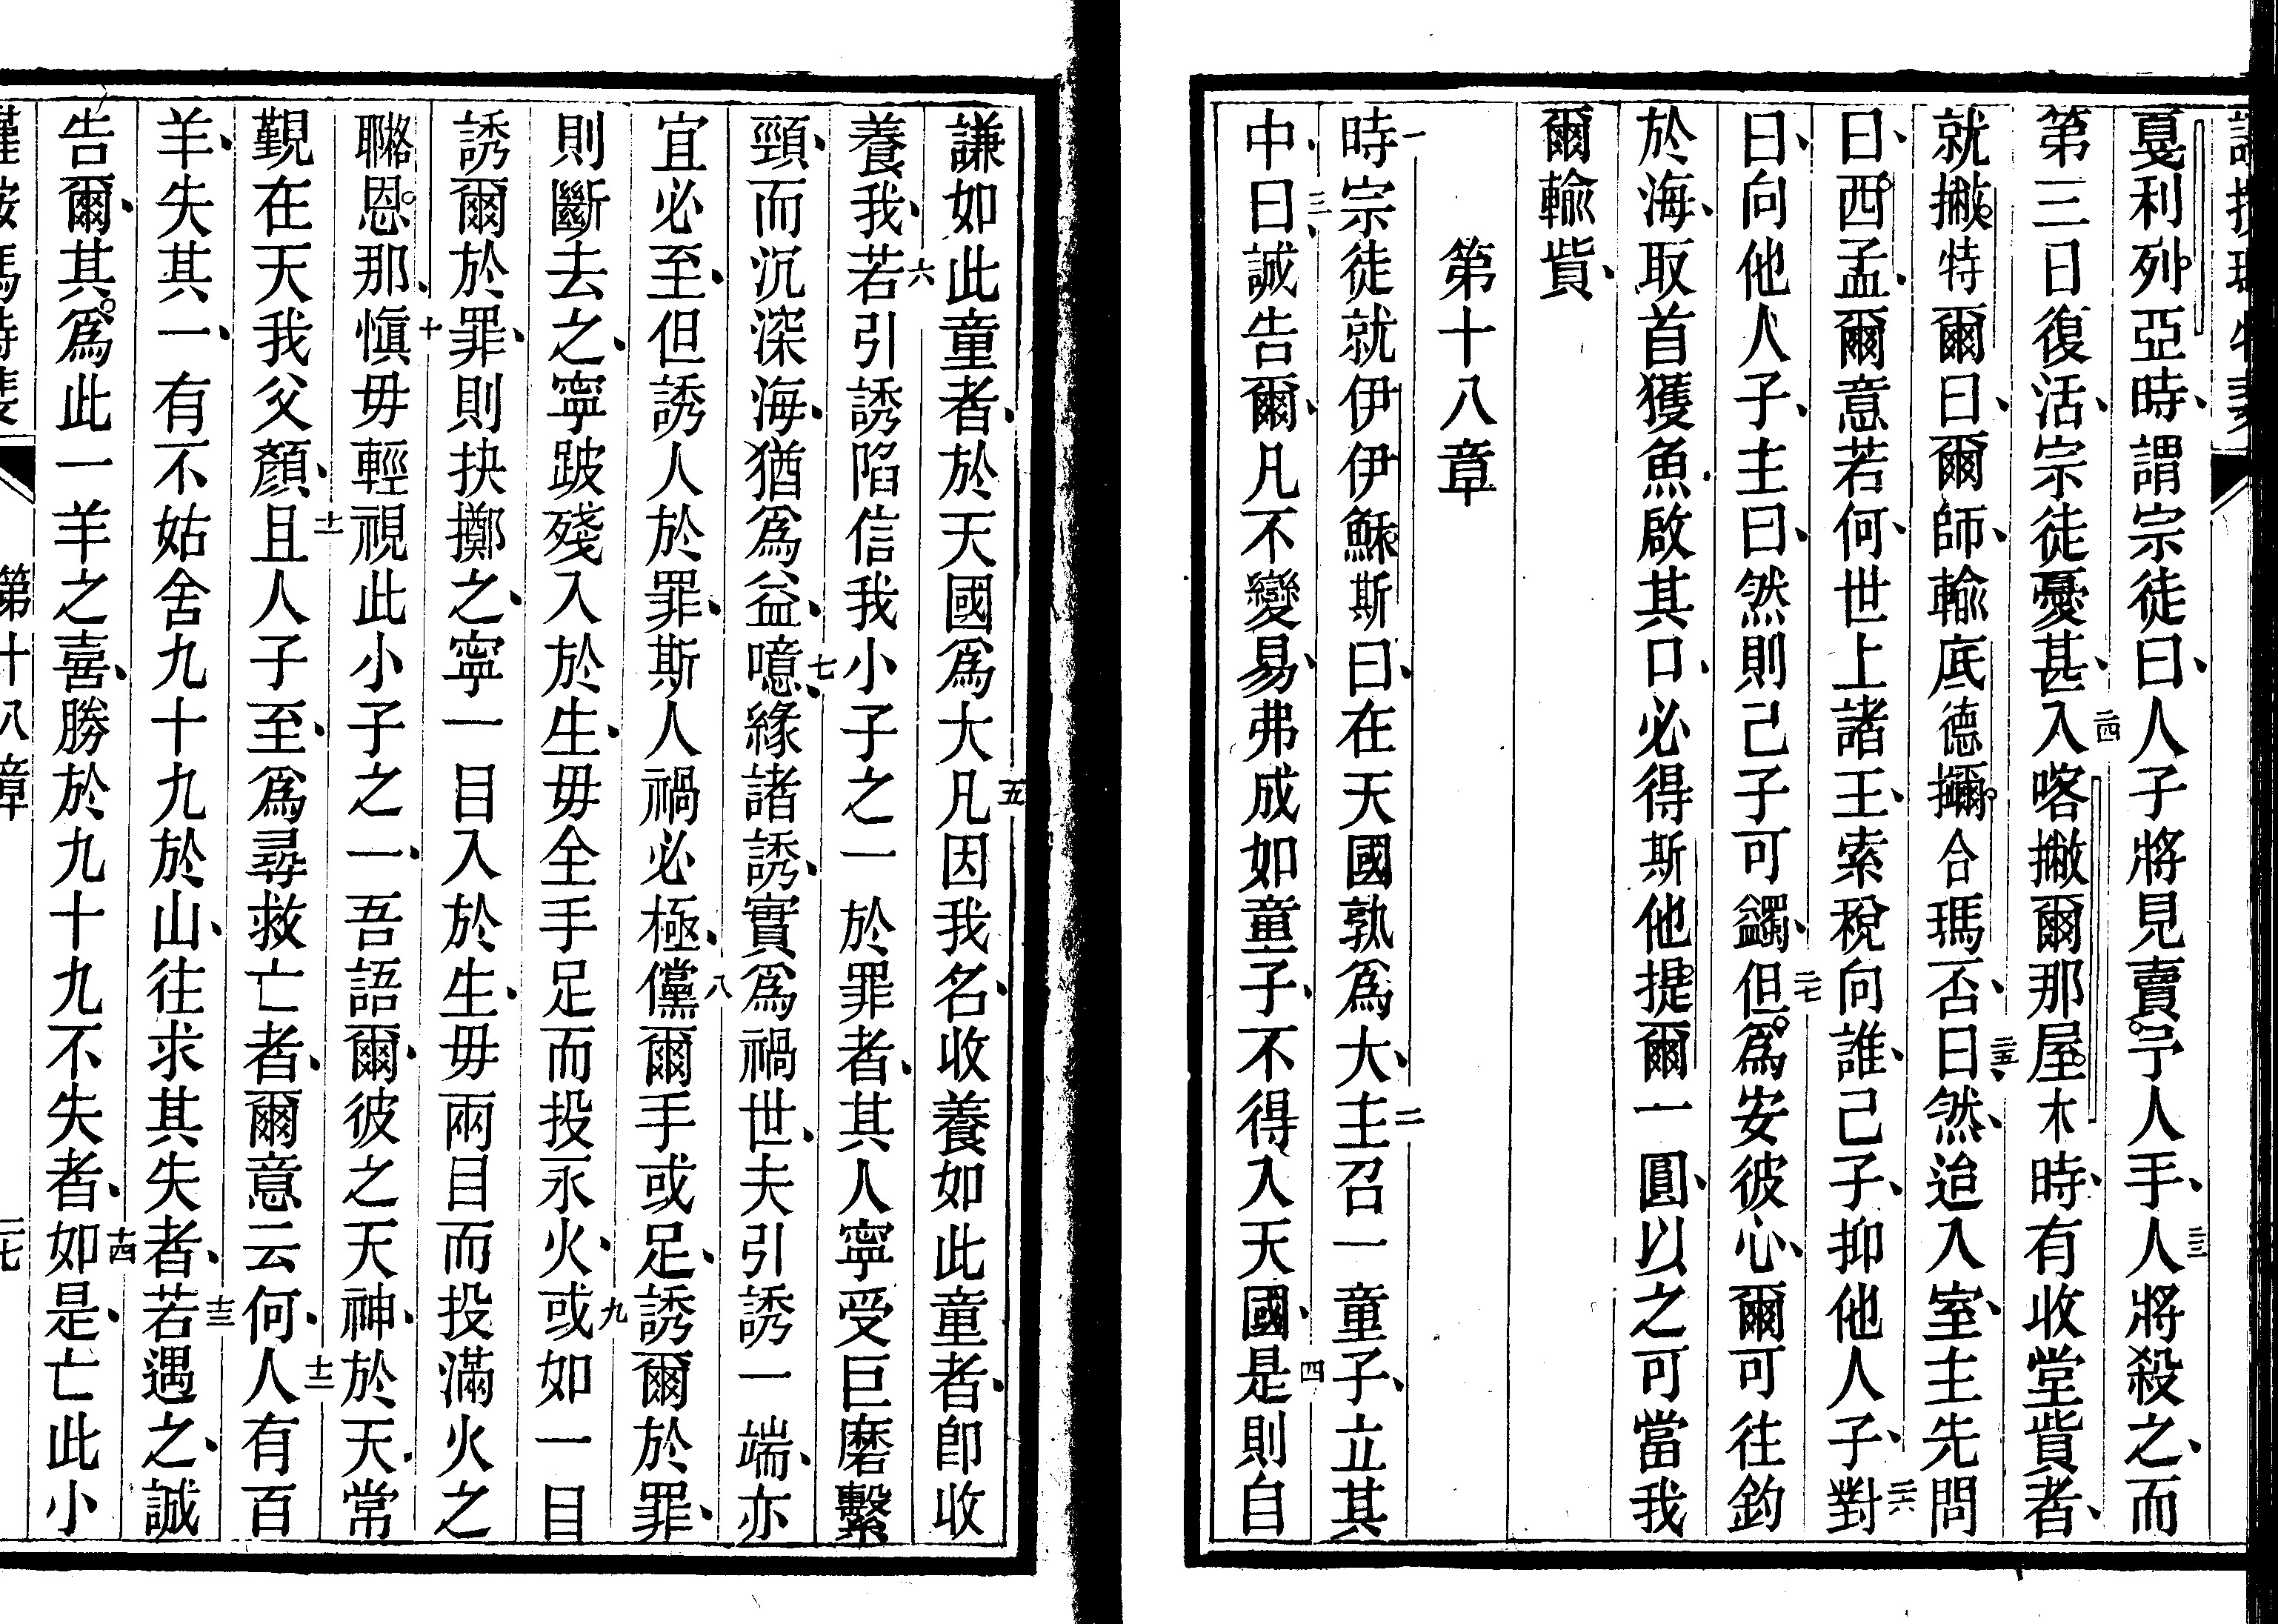 戛利列亞時、謂宗徒曰、人子將見賣予人手、人三將殺之、而
第三日復活、宗徒憂甚、二四入喀撇爾那屋木時、有收堂貲者、
就撇特爾曰、爾師、輸底德彌合瑪否、二五曰、然、迨入室、主先問
曰、西孟、爾意若何、世上諸王、索稅向誰、己子、抑他人子、二六對
曰、向他人子、主曰、然則己子可蠲、二七但爲安彼心、爾可往釣
於海、取首獲魚、啟其口、必得斯他提爾一圓、以之可當我
爾輸貲、
第十八章
一時宗徒就伊伊穌斯曰、在天國孰爲大、二主召一童子、立其
中、三曰、誠告爾、凡不變易、弗成如童子、不得入天國、四是則自
謙如此童者、於天國爲大、五凡因我名、收養如此童者、卽收
養我、六若引誘陷信我小子之一於罪者、其人寧受巨磨繫
頸、而沉深海、猶爲益、七噫、緣諸誘、實爲禍世、夫引誘一端、亦
宜必至、但誘人於罪、斯人禍必極、八儻爾手或足、誘爾於罪、
則斷去之、寧跛殘入於生、毋全手足而投永火、九或如一目
誘爾於罪、則抉擲之、寧一目入於生、毋兩目而投滿火之
恩那、十愼毋輕視此小子之一、吾語爾、彼之天神、於天、常
覲在天我父顏、十一且人子至、爲尋救亡者、爾意云何、十二人有百
羊、失其一、有不姑舍九十九於山、往求其失者、十三若遇之、誠
告爾、其爲此一羊之喜、勝於九十九不失者、十四如是、亡此小
第十八章